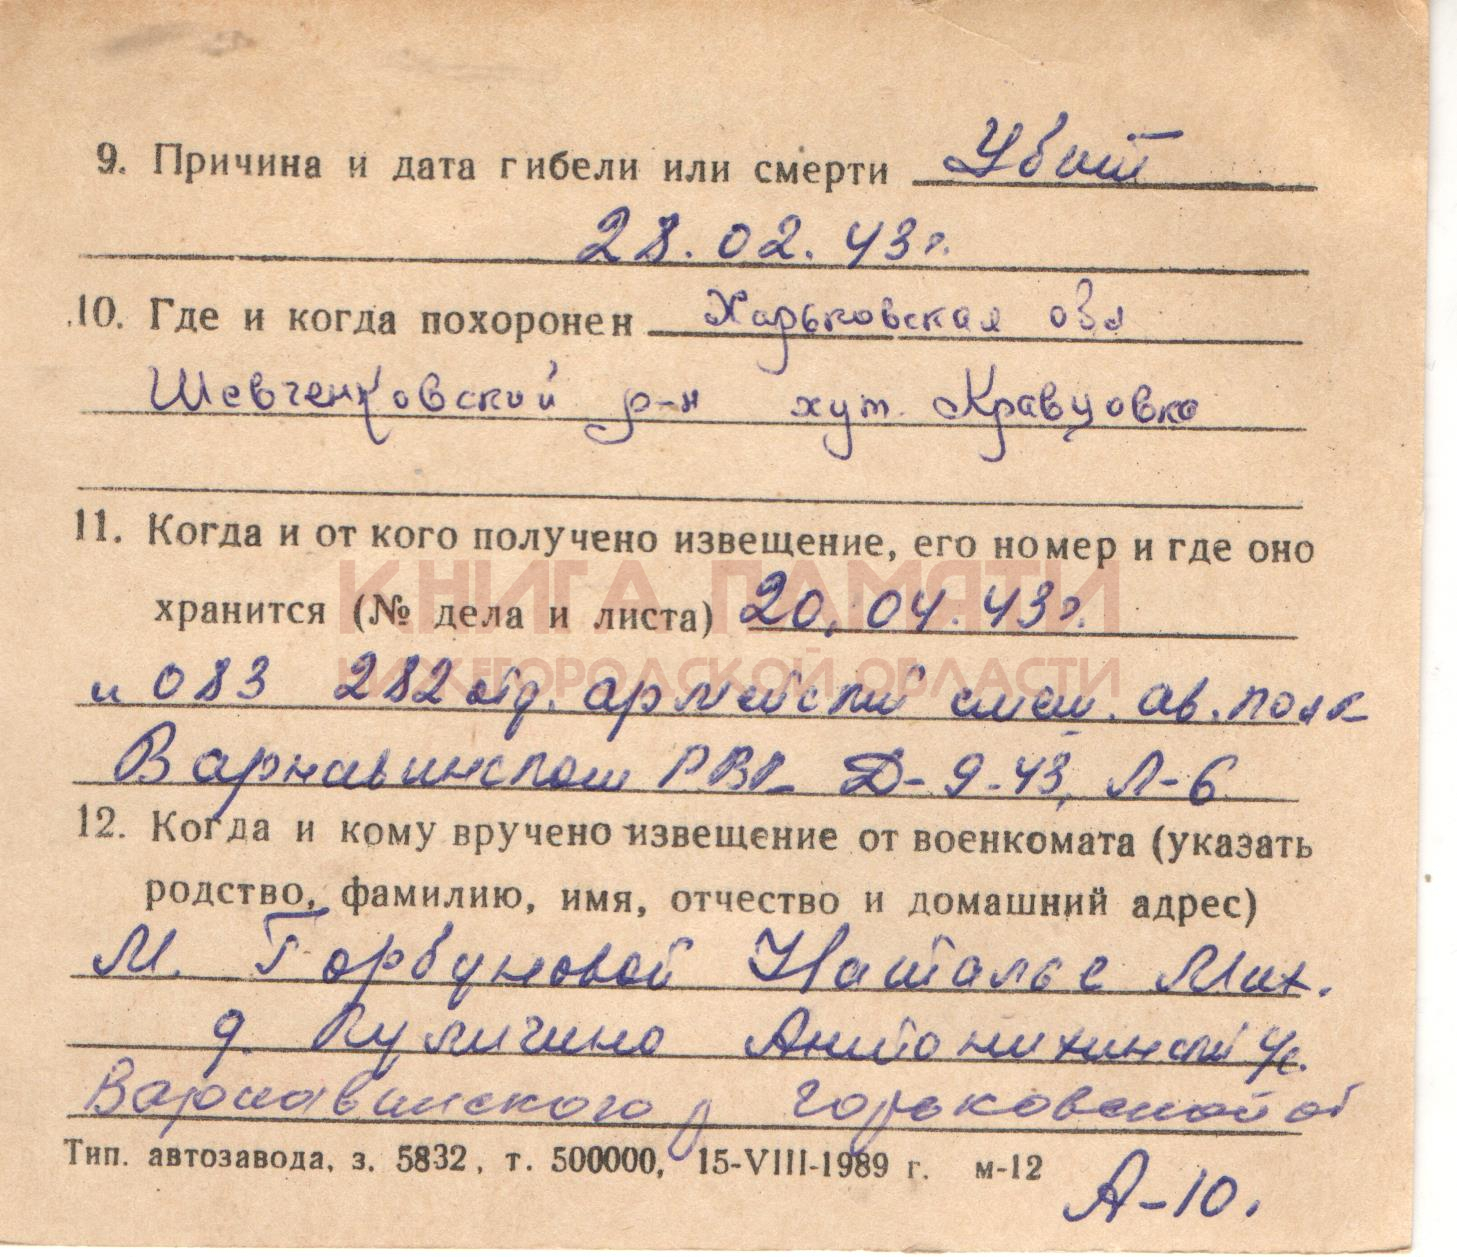 9. Причина и дата гибели или смерти Убит
28.02.43г.
10. Где и когда похоронен Харьковская обл
Шевченковский р-н хут. Кравцовка
11. Когда и от кого получено извещение, его номер и где оно
КНИГА ПАМЯТИ
хранится (№ дела и листа) 20.04.43г.
НИЖЕГОРОДСКОЙ ОБЛАСТИ
и 083 282 отд. армейский смеш. ав. полк
Варнавинском РВК Д-9-43, Л-6
12. Когда и кому вручено извещение от военкомата (указать
родство, фамилию, имя, отчество и домашний адрес)
М. Горбуновой Наталье Мих.
д. Антонихинский
Варнавинского р Горьковской об
Тип. автозавода, з. 5832, т. 500000, 15-VIII-1989 г. м-12
А-10.